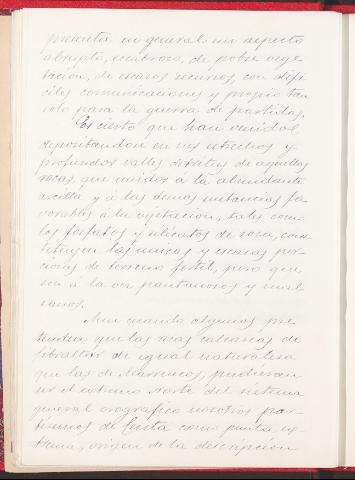 presenta en general un aspecto
abrupto, escabroso, de pobre vege
tacion, de escasos recursos, con difi
ciles comunicaciones y propio tan
solo para la guerra de partidas.
Es cierto que han venido
depositandose en sus estrechos y
profundos valles detritus de aquellas
rocas, que unidos á la abundante
arcilla y á las demas sustancias fa
vorables á la vegetacion, tales como
los fosfatos y silicatos de sosa, cons
tituyen las unicas y escasas por
ciones de terreno fertil, pero que
son á la vez pantanosos y mal
sanos.
Aun cuando algunos pre
tenden que las rocas calcareas de
Gibraltar de igual naturaleza
que las de Marruecos, pudieran
ser el extremo Norte del sistema
general orografico nosotros par
timos de Ceuta como punta ex
trema, origen de la descripción